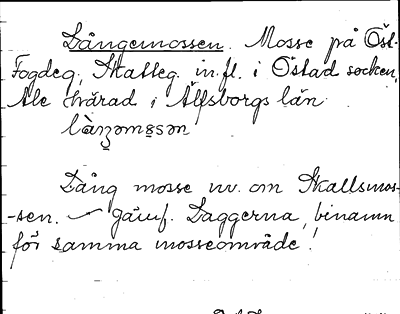 Långemossen. Mosse på Öst-
Fogdeg, Skatteg. m. fl. i Östad socken,
Ale härad i Älfsborgs län.
Lång mosse nv. om Skallsmos-
-sen. jämf. Laggerna, binamn
för samma mosseområde!